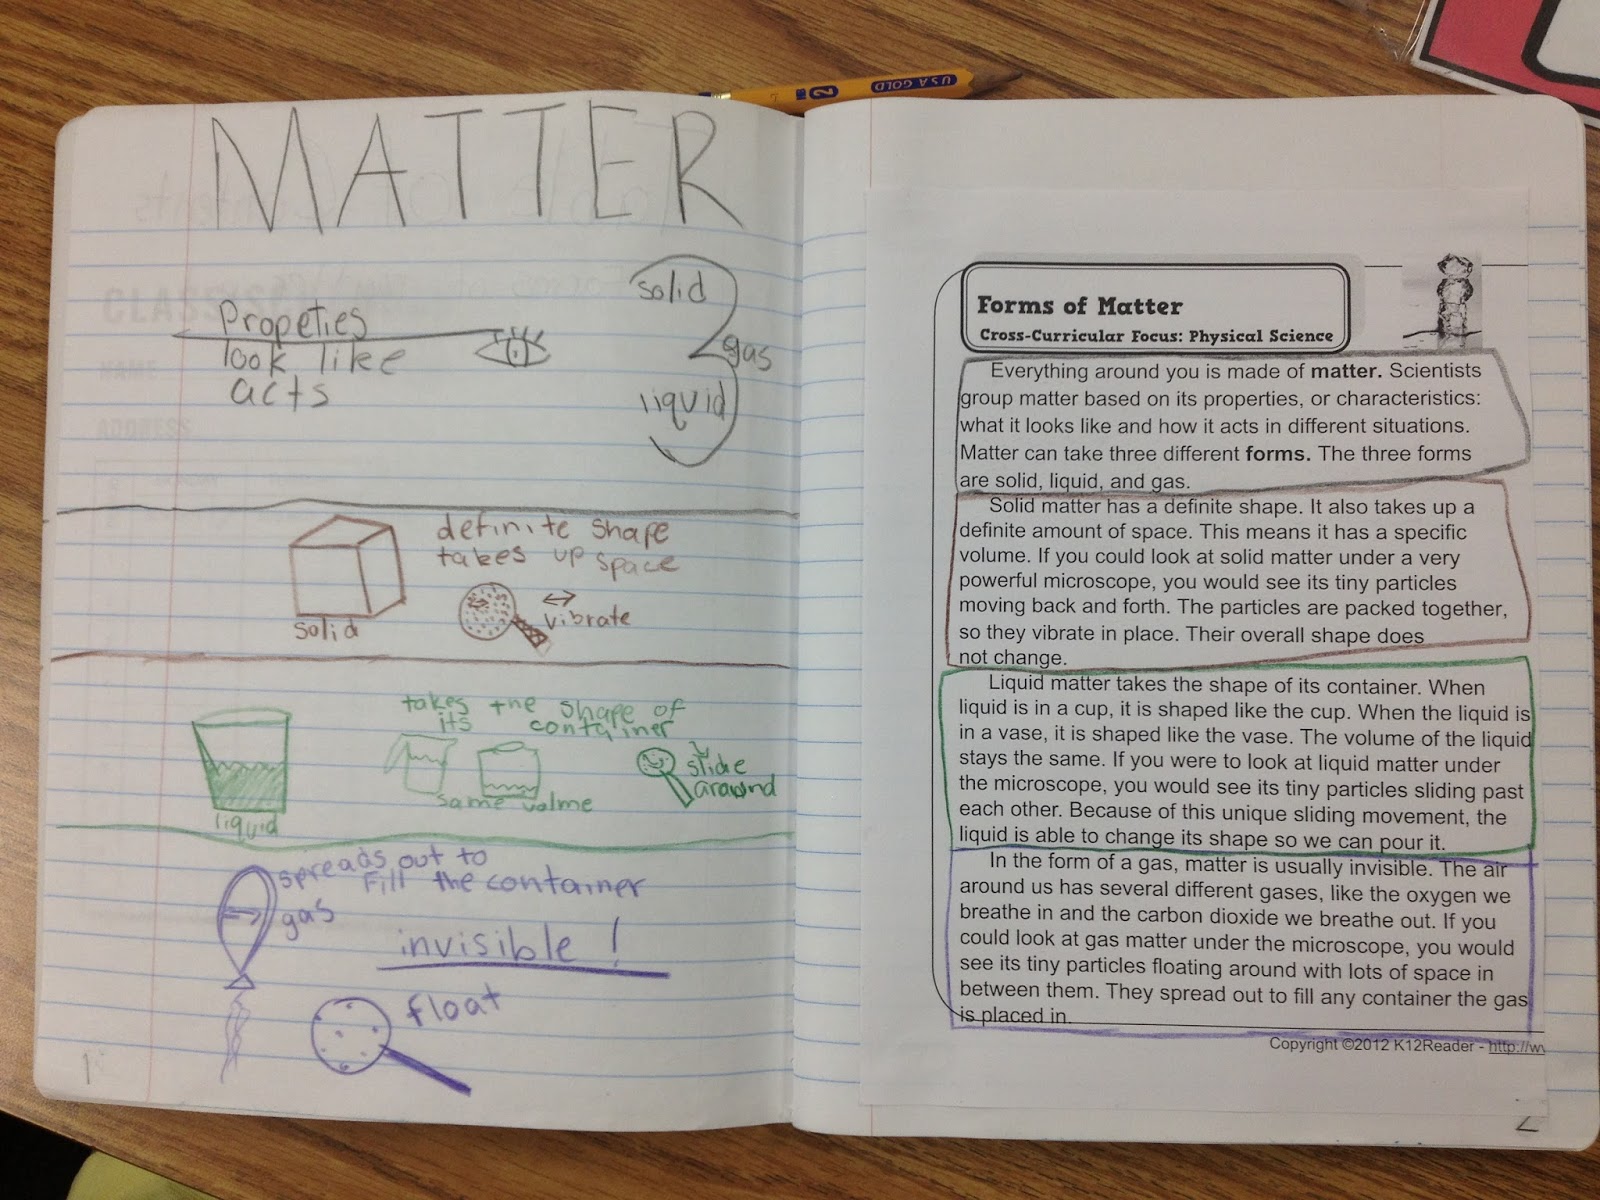 USA GOLD 2 HB
MATTER
Propeties
look like
acts
solid
gas
liquid
definite shape
takes up space
vibrate
solid
takes the shape of
its container
slide
around
same volme
liquid
spreads out to
fill the container
gas
invisible!
float
1
Forms of Matter
Cross-Curricular Focus: Physical Science
Everything around you is made of matter. Scientists
group matter based on its properties, or characteristics:
what it looks like and how it acts in different situations.
Matter can take three different forms. The three forms
are solid, liquid, and gas.
Solid matter has a definite shape. It also takes up a
definite amount of space. This means it has a specific
volume. If you could look at solid matter under a very
powerful microscope, you would see its tiny particles
moving back and forth. The particles are packed together,
so they vibrate in place. Their overall shape does
not change.
Liquid matter takes the shape of its container. When
liquid is in a cup, it is shaped like the cup. When the liquid is
in a vase, it is shaped like the vase. The volume of the liquid
stays the same. If you were to look at liquid matter under
the microscope, you would see its tiny particles sliding past
each other. Because of this unique sliding movement, the
liquid is able to change its shape so we can pour it.
In the form of a gas, matter is usually invisible. The air
around us has several different gases, like the oxygen we
breathe in and the carbon dioxide we breathe out. If you
could look at gas matter under the microscope, you would
see its tiny particles floating around with lots of space in
between them. They spread out to fill any container the gas
is placed in.
Copyright ©2012 K12Reader - http://w
2